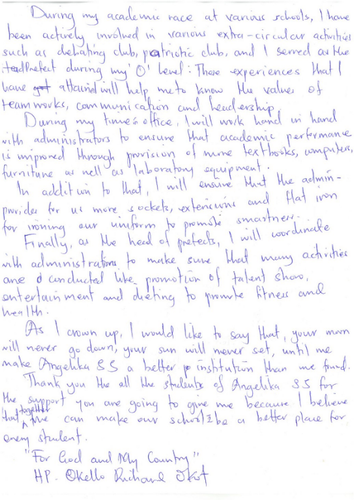 During my academic race at various schools, I have
been actively involved in various extra-circular activities
such as debating club, patriotic club, and I served as the
during my 'O' level. These experiences that I
have attained will help me to know the values of
teamworks, communication and leadership.
During my time's office, I will work hand in hand
with administrators to ensure that academic performance
is improved through provision of more textbooks, computers,
furniture as well as laboratory equipment.
In addition to that, I will ensure that the admin-
provides for us more sockets, extensions and flat iron
for ironing our uniform to promote smartness.
Finally, as the head of prefects, I will coordinate
with administrators to make sure that many activities
are conducted like promotion of talent show,
entertainment and dieting to promote fitness and
health.
As I crown up, I would like to say that, your moon
will never go down, your sun will never set, until me
make Angelika SS a better institution than we found.
Thank you the all the students of Angelika SS for
the support you are going to give me because I believe
that together we can make our school be a better place for
every student.
"For God and My Country"
HP. Okello Richard